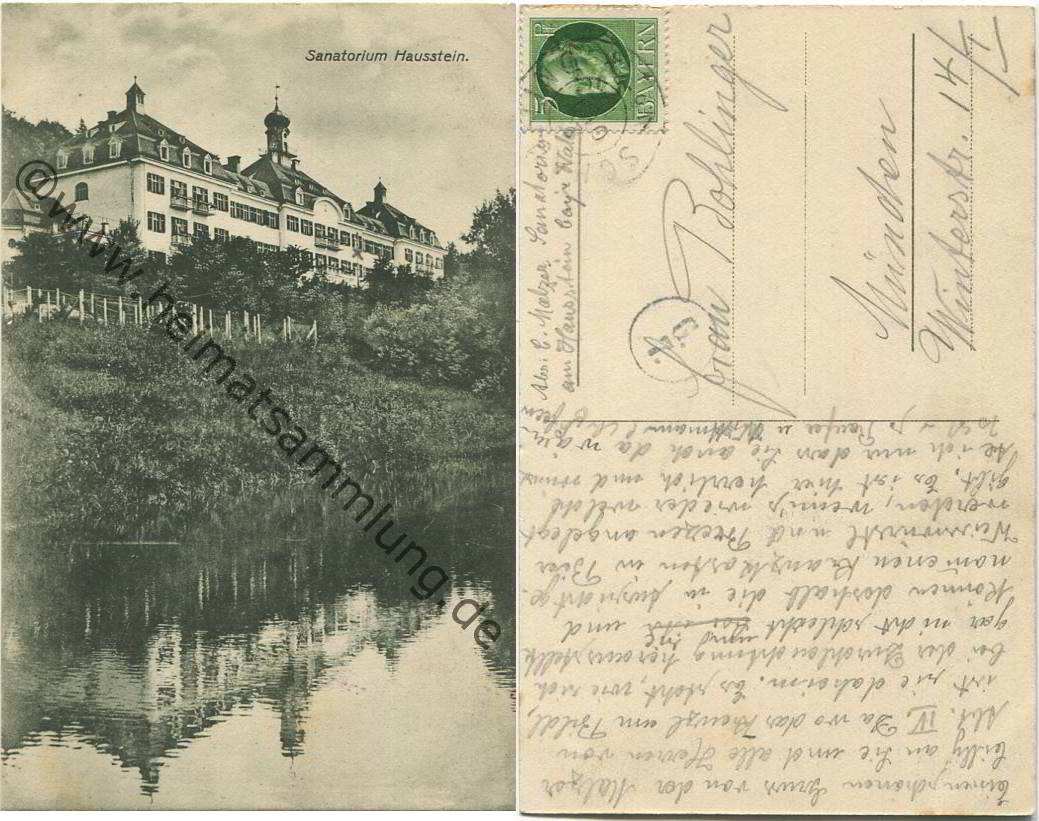 Sanatorium Hausstein.
@ www.heimatsammlung.de
BAYERN
Abs: C. Malzer Sanatorium
am Hausstein bayr Wald
Frau Bohlinger
München
Winterstr. 14/
Einen schönen Gruss von der Malzer
Cilly an Sie und alle Herren von
Abt. IV. Da wo das Kreuzl am Bild,
ist sie daheim. Es steht, wie sich
bei der Durchleuchtung herausstellt
gar nicht schlecht und Sie
können deshalb die in Aussicht ge-
nommenen Kranzkosten in Bier
Weisswürstl und Brezen angelegt
werden, wenn's wieder welche
gibt. Es ist hier herrlich und
ich nur das Sie auch da wären